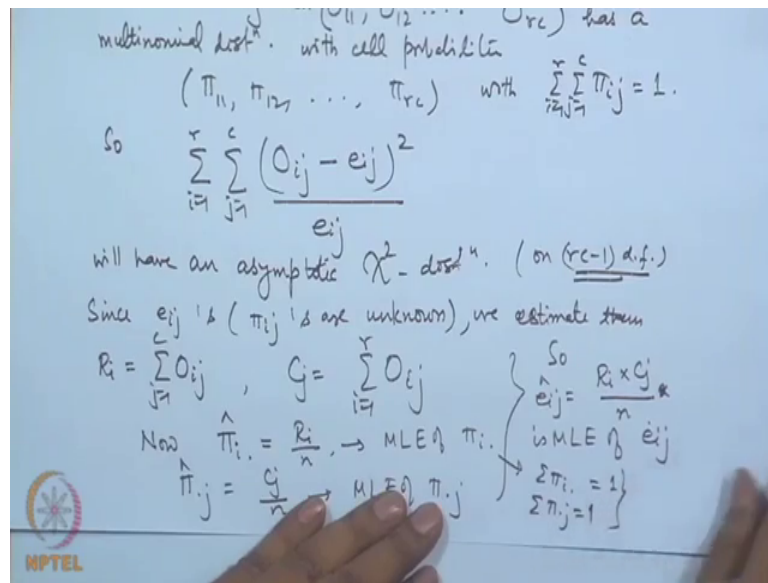 (O₁₁, O₁₂ .... O_rc) has a
multinomial distⁿ. with cell probabilities
(π₁₁, π₁₂, ..., π_rc) with Σ_{i=1}^{r} Σ_{j=1}^{c} π_ij = 1.
So Σ_{i=1}^{r} Σ_{j=1}^{c} (O_ij − e_ij)² / e_ij
will have an asymptotic χ² - distⁿ. (on (rc-1) d.f.)
Since e_ij 's (π_ij 's are unknown), we estimate them
R_i = Σ_{j=1}^{c} O_ij , C_j = Σ_{i=1}^{r} O_ij
Now π̂_i. = R_i / n → MLE of π_i.
π̂_.j = C_j / n → MLE of π_.j
So
ê_ij = R_i × C_j / n
is MLE of e_ij
Σ π_i. = 1
Σ π_.j = 1
NPTEL